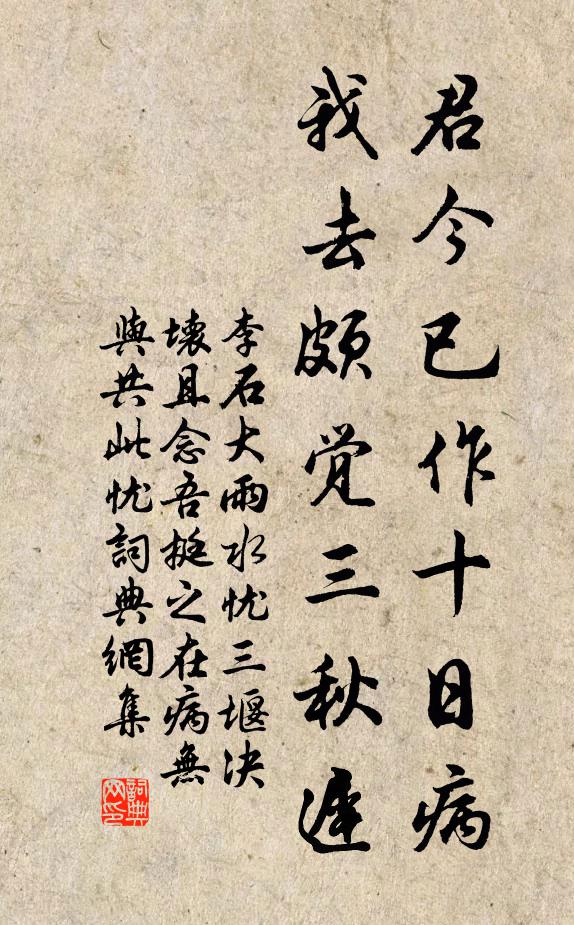 君今已作十日病
我去頗覺三秋遲
李石大雨水忧三堰决
壞且念吾挺之在病無
與共此忧詞典網集
詞典
网印